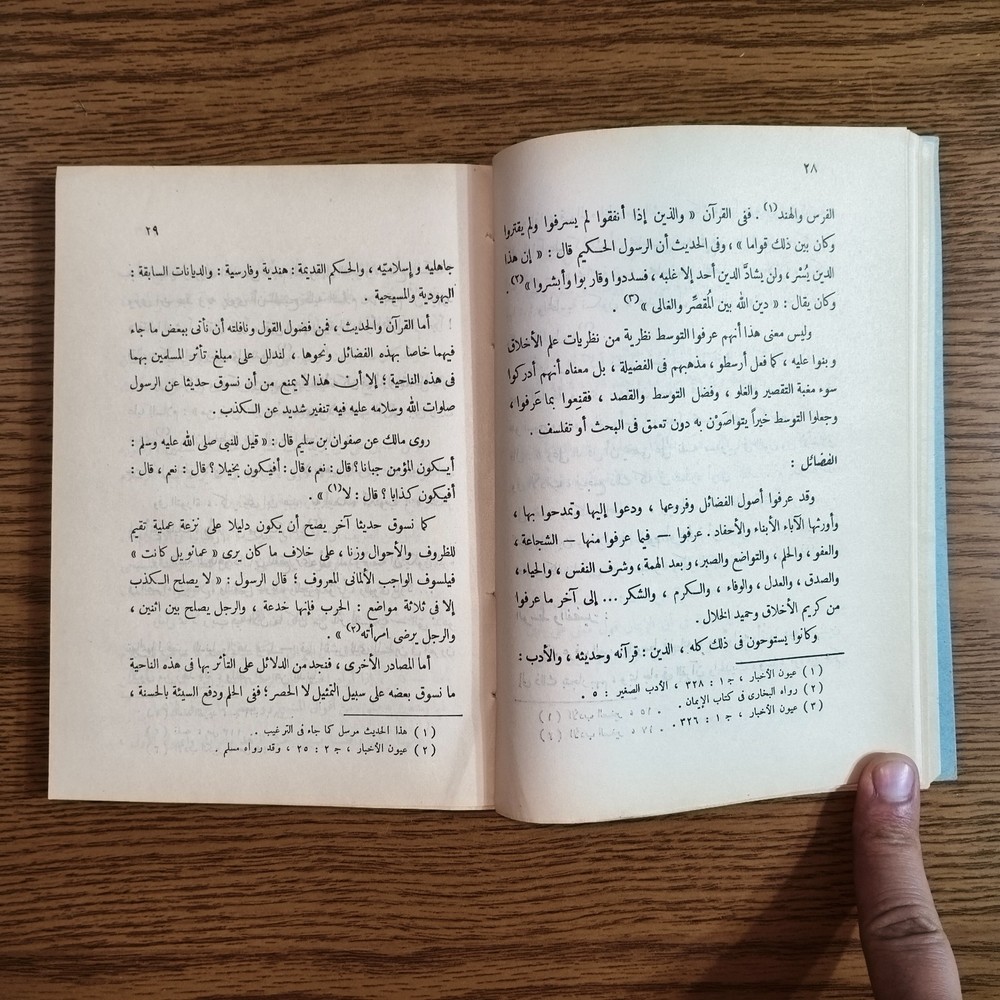 ٢٨
الفرس والهند(١) . ففى القرآن « والذين إذا أنفقوا لم يسرفوا ولم يقتروا
وكان بين ذلك قواما » ، وفى الحديث أن الرسول الحكيم قال : « إن هذا
الدين يُسْر ، ولن يشادَّ الدين أحد إلا غلبه ، فسددوا وقاربوا وأبشروا »(٢) .
وكان يقال : « دين الله بين المُقصِّر والغالى »(٣) .
وليس معنى هذا أنهم عرفوا التوسط نظرية من نظريات علم الأخلاق
وبنوا عليه ، كما فعل أرسطو ، مذهبهم فى الفضيلة ، بل معناه أنهم أدركوا
سوء مغبة التقصير والغلو ، وفضل التوسط والقصد ، فقنِعوا بما عَرفوا ،
وجعلوا التوسط خيراً يتواصَوْن به دون تعمق فى البحث أو تفلسف .
الفضائل :
وقد عرفوا أصول الفضائل وفروعها ، ودعوا إليها وتمدحوا بها ،
وأورثها الآباء الأبناء والأحفاد . عرفوا — فيما عرفوا منها — الشجاعة ،
والعفو ، والحلم ، والتواضع والصبر ، وبعد الهمة ، وشرف النفس ، والحياء ،
والصدق ، والعدل ، والوفاء ، والكرم ، والشكر ... إلى آخر ما عرفوا
من كريم الأخلاق وحميد الخلال .
وكانوا يستوحون فى ذلك كله ، الدين : قرآنه وحديثه ، والأدب :
(١) عيون الأخبار ، ج ١ : ٣٢٨ ، الأدب الصغير : ٥ .
(٢) رواه البخارى فى كتاب الإيمان .
(٣) عيون الأخبار ، ج ١ : ٣٢٦ .
٢٩
جاهليه وإسلاميه ، والحكم القديمة : هندية وفارسية : والديانات السابقة :
اليهودية والمسيحية .
أما القرآن والحديث ، فمن فضول القول ونافلته أن نأتى ببعض ما جاء
فيهما خاصا بهذه الفضائل ونحوها ، لندلل على مبلغ تأثر المسلمين بهما
فى هذه الناحية ؛ إلا أن هذا لا يمنع من أن نسوق حديثا عن الرسول
صلوات الله وسلامه عليه فيه تنفير شديد عن الكذب .
روى مالك عن صفوان بن سليم قال : « قيل للنبى صلى الله عليه وسلم :
أيكون المؤمن جبانا ؟ قال : نعم ، قال : أفيكون بخيلا ؟ قال : نعم ، قال :
أفيكون كذابا ؟ قال : لا(١) » .
كما نسوق حديثا آخر يصح أن يكون دليلا على نزعة عملية تقيم
للظروف والأحوال وزنا ، على خلاف ما كان يرى « عمانويل كانت »
فيلسوف الواجب الألمانى المعروف ؛ قال الرسول : « لا يصلح الكذب
إلا فى ثلاثة مواضع : الحرب فإنها خدعة ، والرجل يصلح بين اثنين ،
والرجل يرضى امرأته(٢) » .
أما المصادر الأخرى ، فنجد من الدلائل على التأثر بها فى هذه الناحية
ما نسوق بعضه على سبيل التمثيل لا الحصر ؛ ففى الحلم ودفع السيئة بالحسنة ،
(١) هذا الحديث مرسل كما جاء فى الترغيب .
(٢) عيون الأخبار ، ج ٢ : ٢٥ ، وقد رواه مسلم .